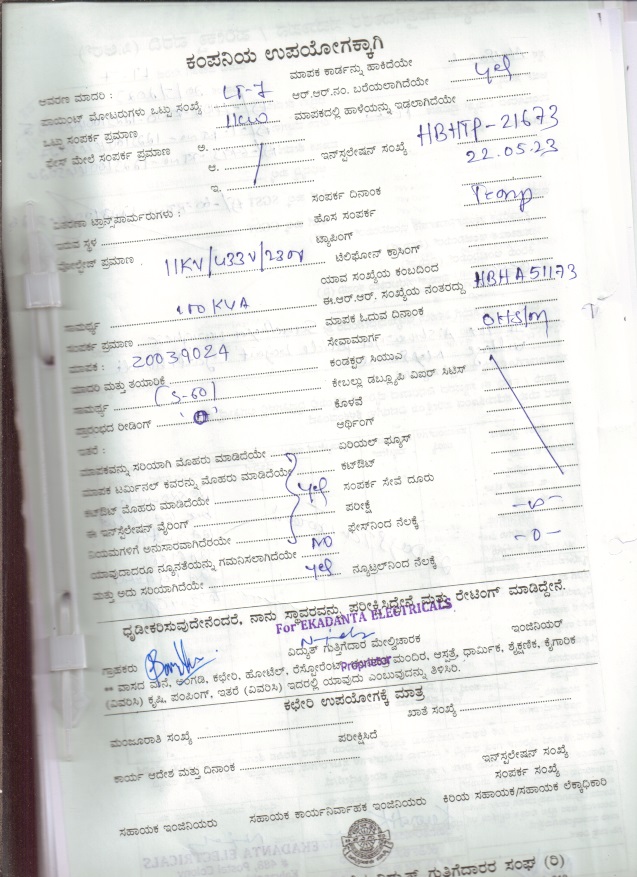 ಕಂಪನಿಯ ಉಪಯೋಗಕ್ಕಾಗಿ
ಆವರಣ ಮಾದರಿ : LT-7 ಮಾಪಕ ಕಾರ್ಡನ್ನು ಹಾಕಿದೆಯೇ yes
ಪಾಯಿಂಟ್ ಮೋಟರುಗಳು ಒಟ್ಟು ಸಂಖ್ಯೆ 11KW ಆರ್.ಆರ್.ನಂ. ಬರೆಯಲಾಗಿದೆಯೇ
ಒಟ್ಟಾ ಸಂಪರ್ಕ ಪ್ರಮಾಣ ಮಾಪಕದಲ್ಲಿ ಹಾಳೆಯನ್ನು ಇಡಲಾಗಿದೆಯೇ
ಫೇಸ್ ಮೇಲೆ ಸಂಪರ್ಕ ಪ್ರಮಾಣ ಅ. ಇನ್‌ಸ್ಟಲೇಷನ್ ಸಂಖ್ಯೆ HBHTP-21673
ಆ. 22.05.23
ಇ. ಸಂಪರ್ಕ ದಿನಾಂಕ Temp
ವಿತರಣಾ ಟ್ರಾನ್ಸ್‌ಪಾರ್ಮರುಗಳು : ಹೊಸ ಸಂಪರ್ಕ
ಇರುವ ಸ್ಥಳ ಟ್ಯಾಪಿಂಗ್
ವೋಲ್ಟೇಜ್ ಪ್ರಮಾಣ . 11KV/433V/230V ಟೆಲಿಫೋನ್ ಕ್ರಾಸಿಂಗ್
ಯಾವ ಸಂಖ್ಯೆಯ ಕಂಬದಿಂದ
ಸಾಮರ್ಥ್ಯ 100KVA ಈ.ಆರ್.ಆರ್. ಸಂಖ್ಯೆಯ ನಂತರದ್ದು HBHA51173
ಸಂಪರ್ಕ ಪ್ರಮಾಣ ಮಾಪಕ ಓದುವ ದಿನಾಂಕ
ಮಾಪಕ : 20039024 ಸೇವಾಮಾರ್ಗ
ಮಾದರಿ ಮತ್ತು ತಯಾರಿಕೆ ಕಂಡಕ್ಟರ್ ಸಿಯುಎ
ಸಾಮರ್ಥ್ಯ (5-60) ಕೇಬಲ್ಲು ಡಬ್ಲ್ಯೂಪಿ ವಿಐರ್ ಸಿಟಿಸ್
ಪ್ರಾರಂಭದ ರೀಡಿಂಗ್ ಕೊಳವೆ
ಇತರೆ : ಆರ್ಥಿಂಗ್
ಮಾಪಕವನ್ನು ಸರಿಯಾಗಿ ಮೊಹರು ಮಾಡಿದೆಯೇ ಏರಿಯಲ್ ಫ್ಯೂಸ್
ಮಾಪಕ ಟರ್ಮಿನಲ್ ಕವರನ್ನು ಮೊಹರು ಮಾಡಿದೆಯೇ ಕಟ್‌ಔಟ್
ಕಟ್‌ಔಟ್ ಮೊಹರು ಮಾಡಿದೆಯೇ yes ಸಂಪರ್ಕ ಸೇವೆ ದೂರು
ಈ ಇನ್‌ಸ್ಟಲೇಷನ್ ವೈರಿಂಗ್ ಪರೀಕ್ಷೆ
ನಿಯಮಗಳಿಗೆ ಅನುಸಾರವಾಗಿದೆರೆಯೇ ಫೇಸ್‌ನಿಂದ ನೆಲಕ್ಕೆ
ಯಾವುದಾದರೂ ನ್ಯೂನತೆಯನ್ನು ಗಮನಿಸಲಾಗಿದೆಯೇ NO -0-
ಮತ್ತು ಅದು ಸರಿಯಾಗಿದೆಯೇ yes ನ್ಯೂಟ್ರಲ್‌ನಿಂದ ನೆಲಕ್ಕೆ
ಧೃಡೀಕರಿಸುವುದೇನೆಂದರೆ, ನಾನು ಸ್ಥಾವರವನ್ನು ಪರೀಕ್ಷಿಸಿದ್ದೇನೆ ಮತ್ತು ರೇಟಿಂಗ್ ಮಾಡಿದ್ದೇನೆ.
For EKADANTA ELECTRICALS
ಗ್ರಾಹಕರು ವಿದ್ಯುತ್ ಗುತ್ತಿಗೆದಾರ ಮೇಲ್ವಿಚಾರಕ ಇಂಜಿನಿಯರ್
Proprietor
** ವಾಸದ ಮನೆ, ಅಂಗಡಿ, ಕಛೇರಿ, ಹೋಟೆಲ್, ರೆಸ್ಟೋರೆಂಟ್, ಮಂದಿರ, ಆಸ್ಪತ್ರೆ, ಧಾರ್ಮಿಕ, ಶೈಕ್ಷಣಿಕ, ಕೈಗಾರಿಕ
(ವಿವರಿಸಿ) ಕೃಷಿ, ಪಂಪಿಂಗ್, ಇತರೆ (ವಿವರಿಸಿ) ಇದರಲ್ಲಿ ಯಾವುದು ಎಂಬುವುದನ್ನು ತಿಳಿಸಿರಿ.
ಕಛೇರಿ ಉಪಯೋಗಕ್ಕೆ ಮಾತ್ರ
ಮಂಜೂರಾತಿ ಸಂಖ್ಯೆ ಖಾತೆ ಸಂಖ್ಯೆ
ಪರೀಕ್ಷಿಸಿದೆ
ಕಾರ್ಯ ಆದೇಶ ಮತ್ತು ದಿನಾಂಕ ಇನ್‌ಸ್ಟಲೇಷನ್ ಸಂಖ್ಯೆ
ಸಂಪರ್ಕ ಸಂಖ್ಯೆ
ಸಹಾಯಕ ಇಂಜಿನಿಯರು ಸಹಾಯಕ ಕಾರ್ಯನಿರ್ವಾಹಕ ಇಂಜಿನಿಯರು ಕಿರಿಯ ಸಹಾಯಕ/ಸಹಾಯಕ ಲೆಕ್ಕಾಧಿಕಾರಿ
ವಿದ್ಯುತ್ ಗುತ್ತಿಗೆದಾರರ ಸಂಘ (ರಿ)